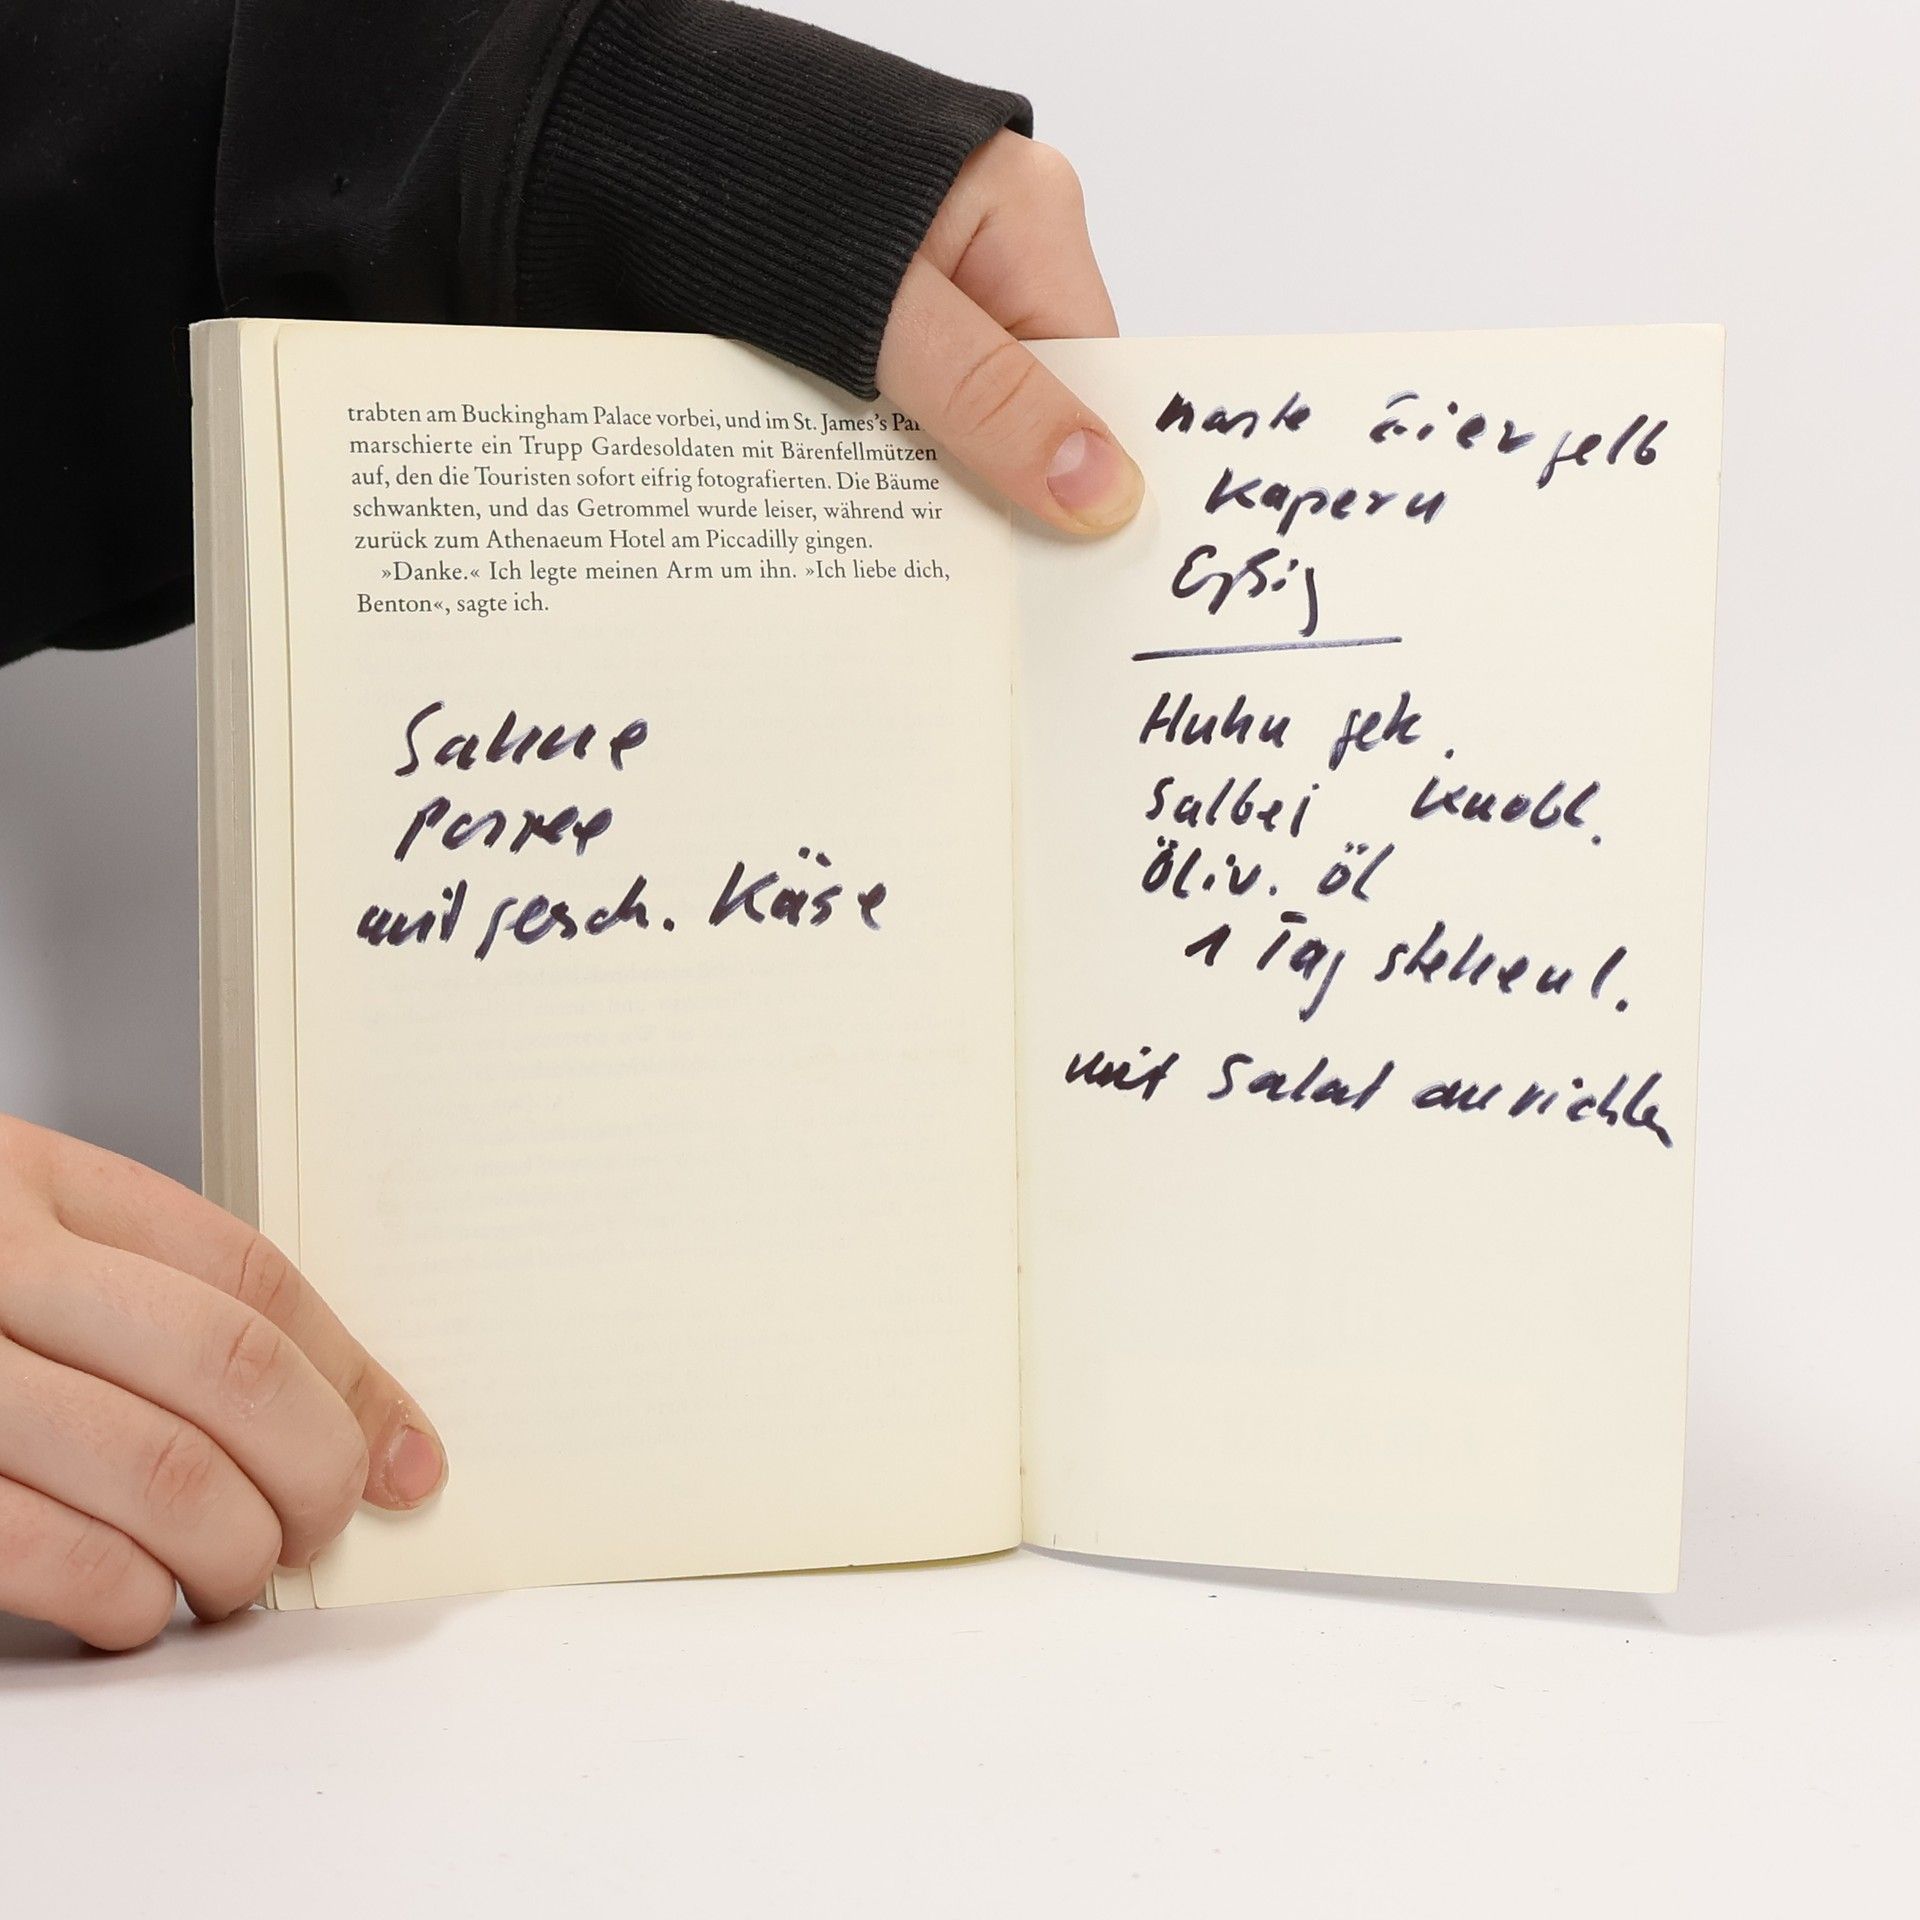 trabten am Buckingham Palace vorbei, und im St. James's
marschierte ein Trupp Gardesoldaten mit Bärenfellmützen
auf, den die Touristen sofort eifrig fotografierten. Die Bäume
schwankten, und das Getrommel wurde leiser, während wir
zurück zum Athenaeum Hotel am Piccadilly gingen.
»Danke.« Ich legte meinen Arm um ihn. »Ich liebe dich,
Benton«, sagte ich.
Sahne
Porree
mit gesch. Käse
harte Eiergelb
Kapern
Essig
Huhn gek.
Salbei Knobl.
Öliv. Öl
1 Tag stehen l.
mit Salat anrichten